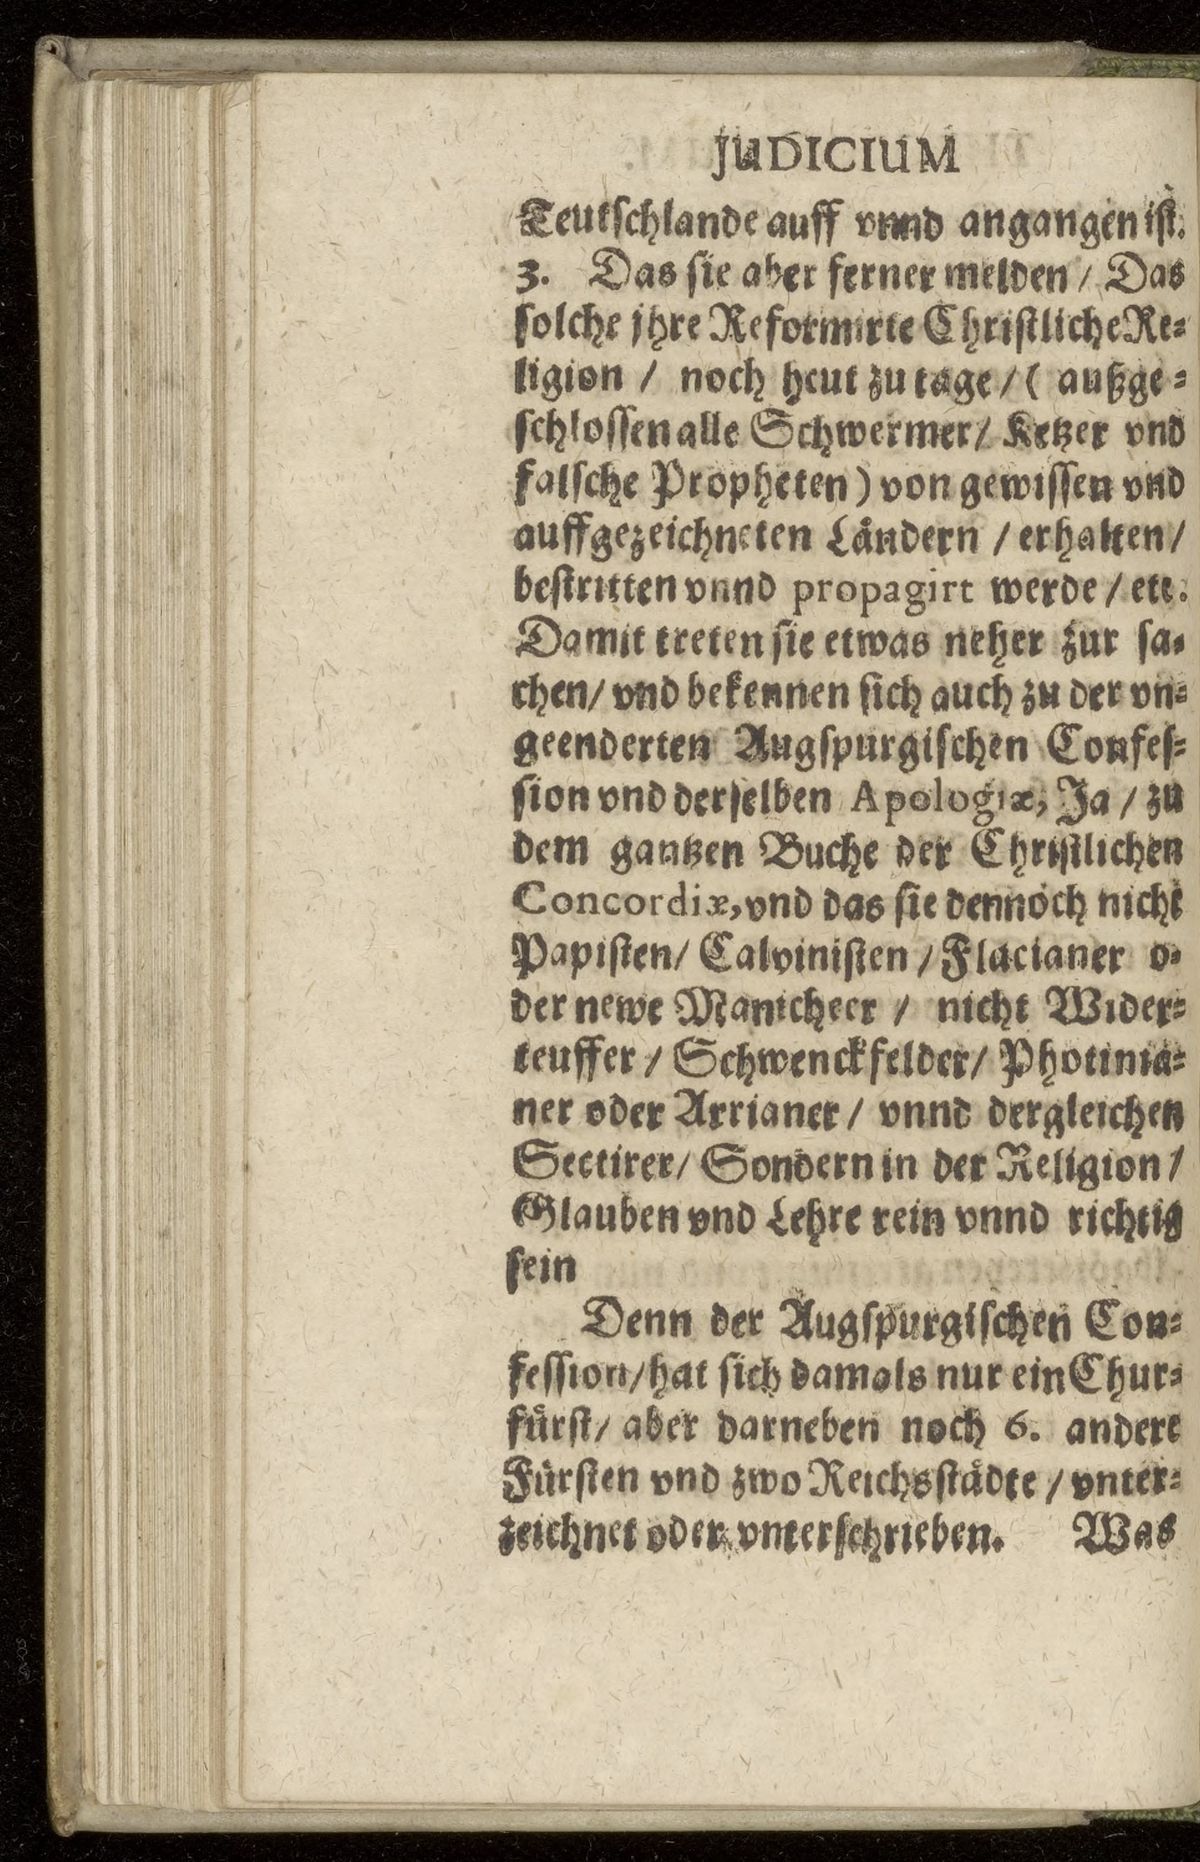 JUDICIUM
Teutschlande auff vnnd angangen ist.
3. Das sie aber ferner melden / Das
solche jhre Reformirte Christliche Re-
ligion / noch heut zu tage / ( außge-
schlossen alle Schwermer / Ketzer vnd
falsche Propheten ) von gewissen vnd
auffgezeichneten Ländern / erhalten /
bestritten vnnd propagirt werde / etc.
Damit treten sie etwas neher zur sa-
chen / vnd bekennen sich auch zu der vn-
geenderten Augspurgischen Confes-
sion vnd derselben Apologiæ, Ja / zu
dem gantzen Buche der Christlichen
Concordiæ, vnd das sie dennoch nicht
Papisten / Calvinisten / Flacianer o-
der newe Manicheer / nicht Wider-
teuffer / Schwenckfelder / Photinia-
ner oder Arrianer / vnnd dergleichen
Sectirer / Sondern in der Religion /
Glauben vnd Lehre rein vnnd richtig
sein
Denn der Augspurgischen Con-
fession / hat sich damals nur ein Chur-
fürst / aber darneben noch 6. andere
Fürsten vnd zwo Reichsstädte / vnter-
zeichnet oder vnterschrieben. Was